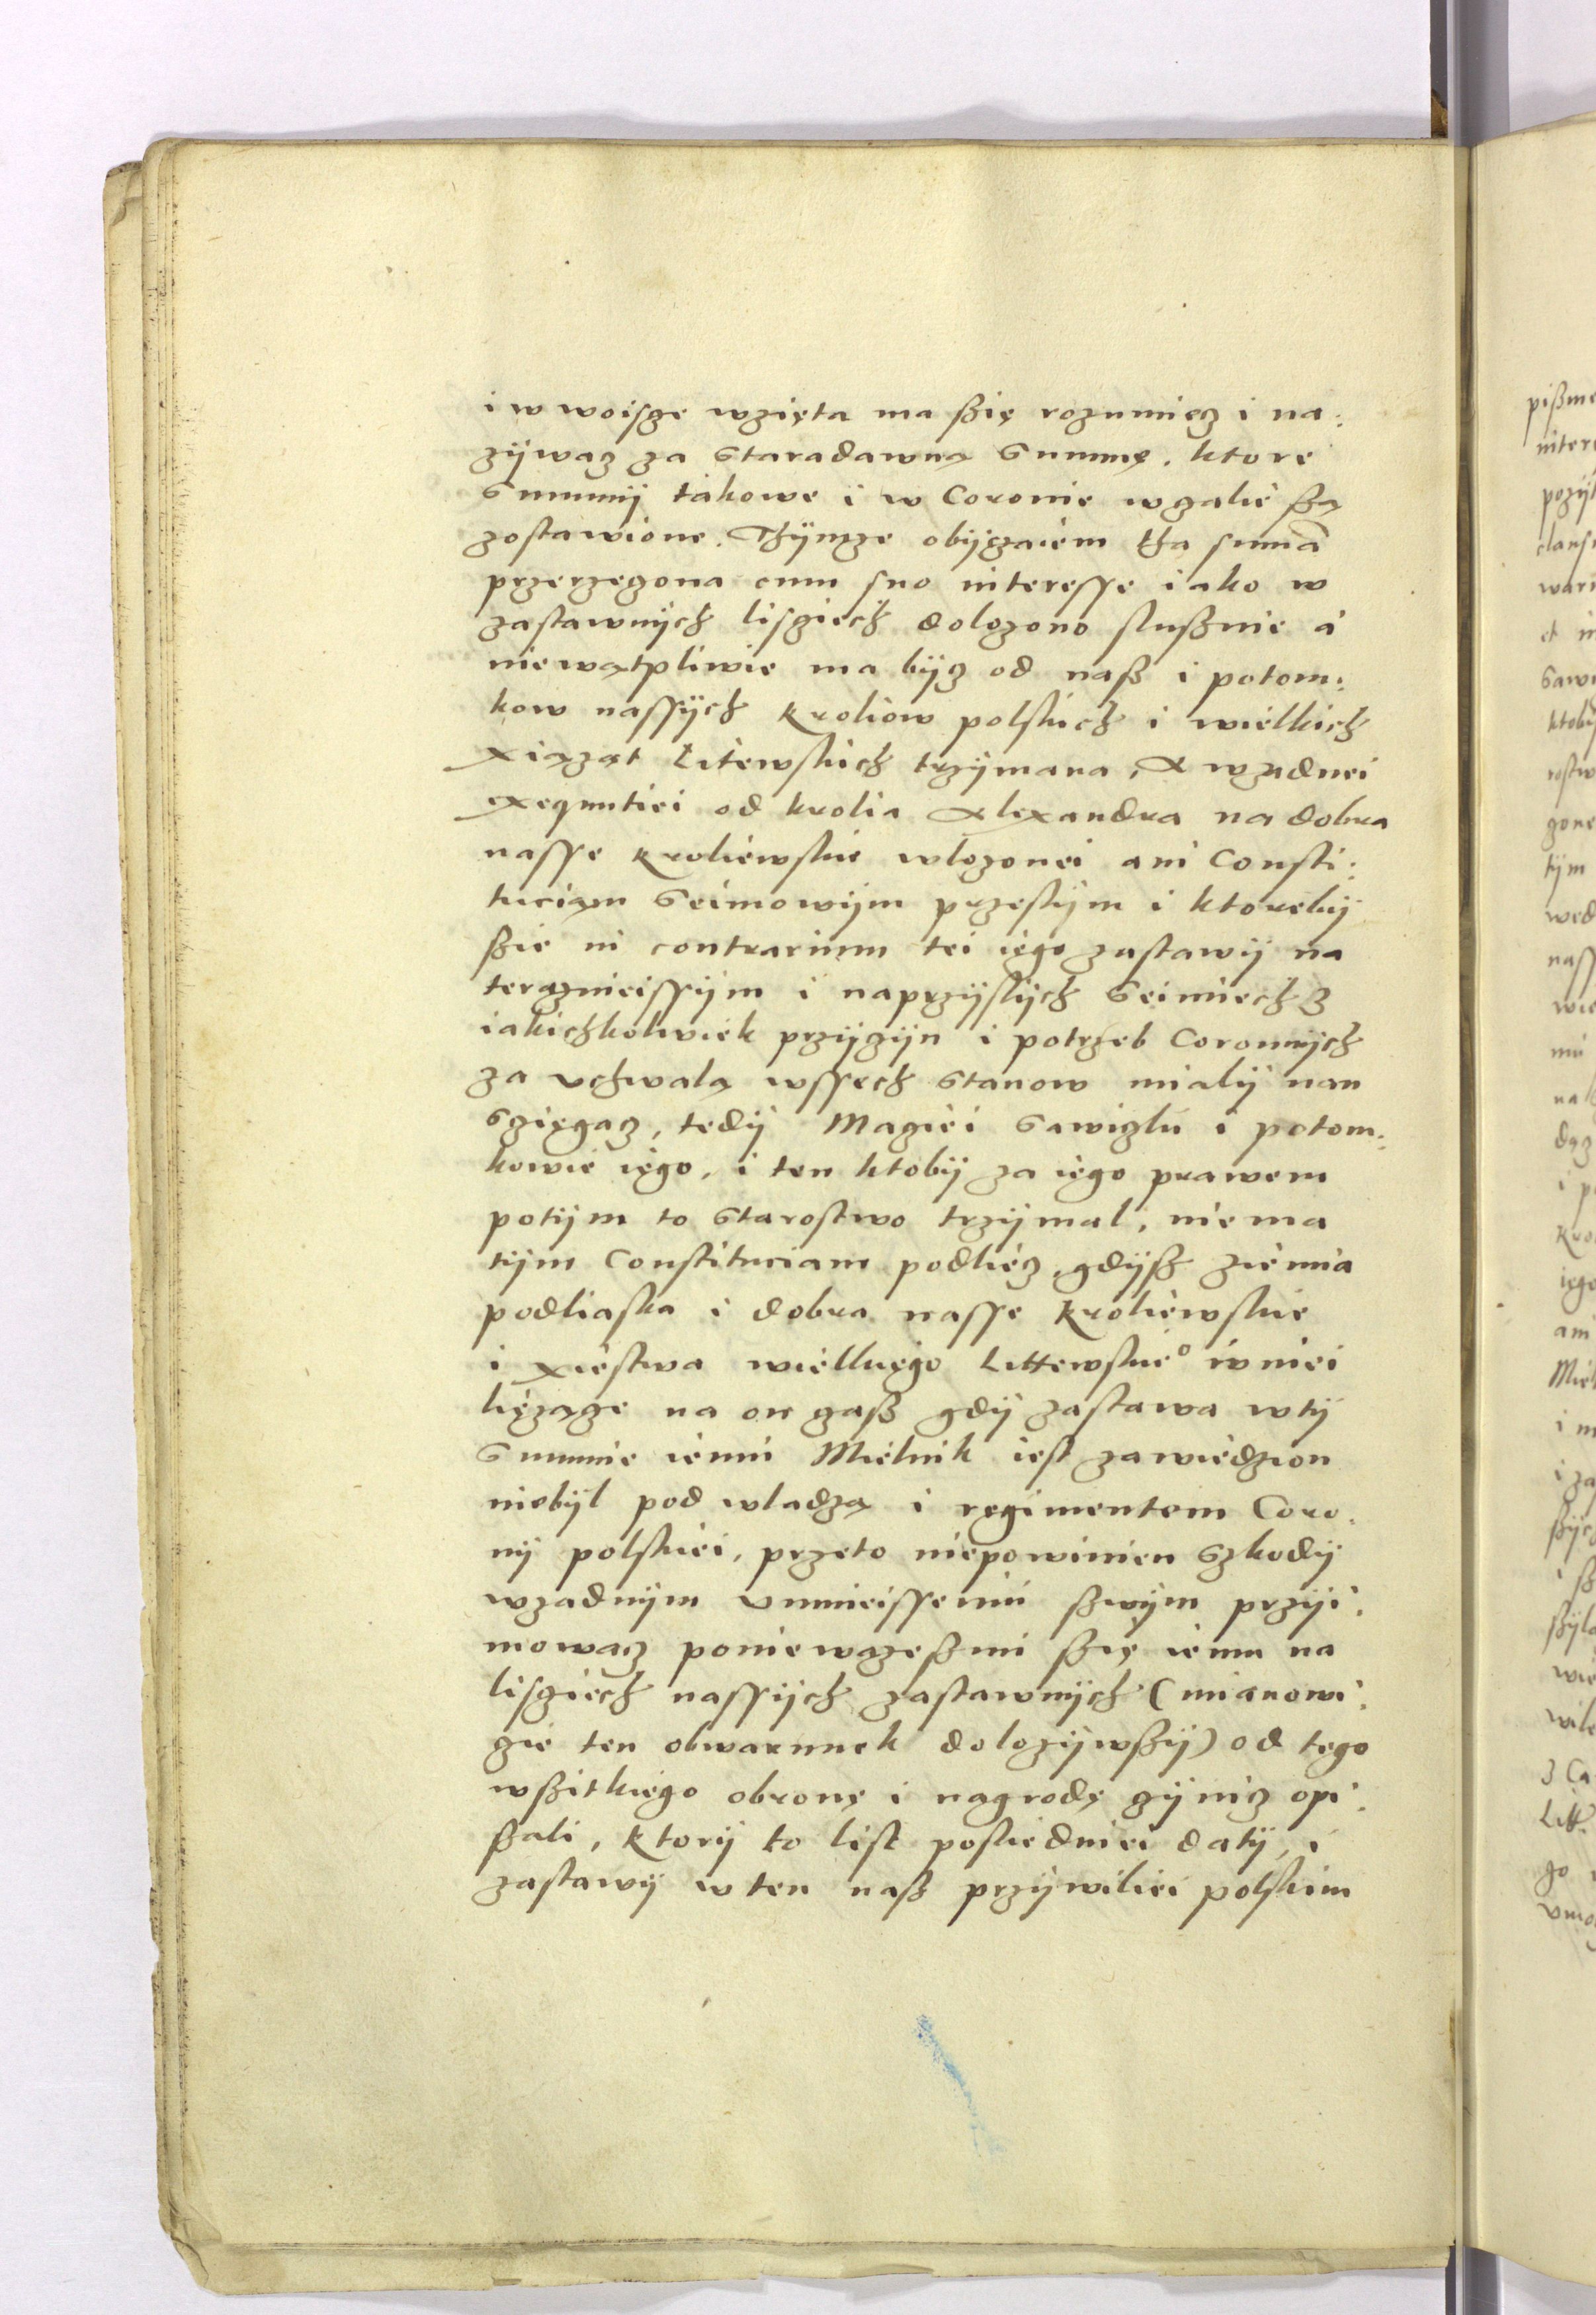 i w woisce wzięta ma ßię rozumiecz i na:
zÿwacz za Staradawną Summę. ktore
Summÿ takowe i w Coronie wcalie ßą
zostawione. Thÿmze obÿczaiem tha sumā
przerzeczona cum suo interesse iako w
zastawnÿch lisciech dolozono slußnie a
niewątpliwie ma bÿcz od naß i potom:
kow nassÿch Kroliow polskich i wielkich
Xiąząt Litewskich trzÿmana, A wzadnei
exequutiei od krolia Alexandra na dobra
nasse Kroliewskie wlozonei ani Consti:
tuciam Seimowÿm przeslÿm i ktorebÿ
ßie in contrarium tei iego zastawÿ na
teraznieissÿm i naprzÿslÿch Seimiech z
iakichkolwiek przÿczÿn i potrzeb Coronnÿch
za vchwalą wssech Stanow mialÿ nan
Sciegacz, tedÿ Maciei Sawiczki i potom:
kowie iego, i ten ktobÿ za iego prawem
potÿm to Starostwo trzÿmal, niema
tÿm Constituciam podliecz, gdÿß ziemia
podliaska i dobra nasse Kroliewskie
i Xiestwa wielkiego Littewskie° w niei
liezące na on czaß gdÿ zastawa wtÿ
Summie iemu Mielnik iest zawiedzion
niebÿl pod wladzą i regimentem Coro:
nÿ polskiei, przeto niepowinien Szkodÿ
wzadnÿm vmnieisseniu ßwÿm przÿi:
mowacz poniewazeßmi ßię iemu na
lisciech nassÿch zastawnÿch (mianowi:
cie ten obwarunek dolozÿwßÿ) od tego
wßitkiego obronę i nagrodę czÿnicz opi:
ßali, ktorÿ to list posliedniei datÿ, i
zastawÿ w ten naß przÿwiliei polskim